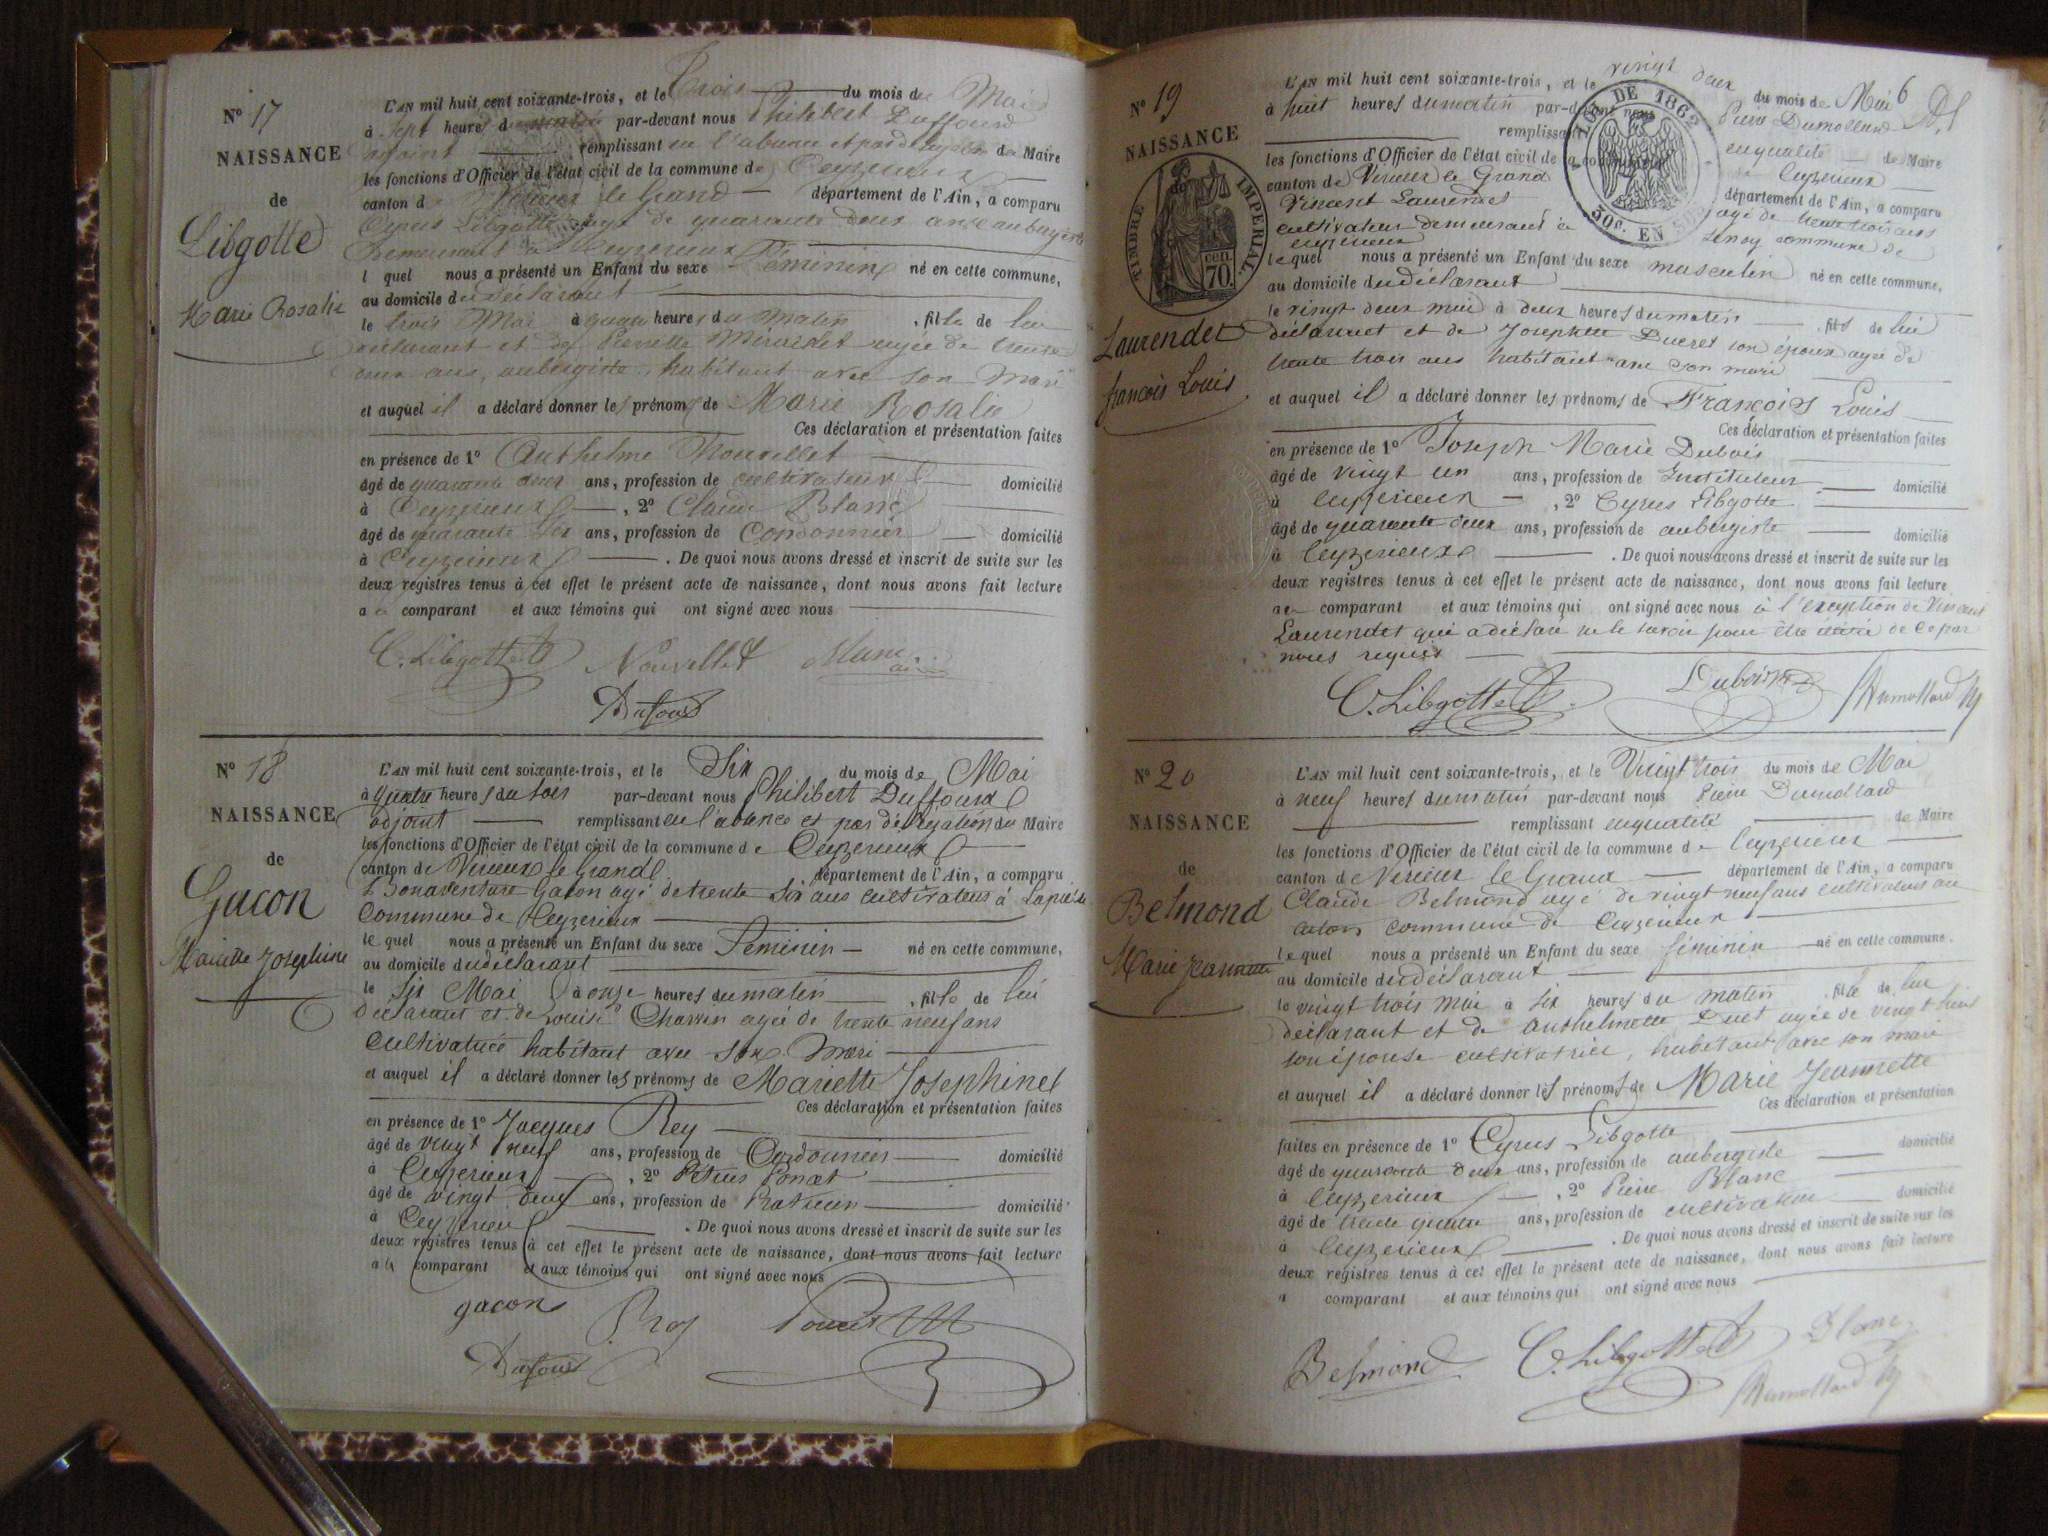 N° 17
NAISSANCE
de
Libgotte
Marie Rosalie
L'AN mil huit cent soixante-trois, et le Trois du mois de Mai
à Sept heures d par-devant nous Philibert Duffourd
adjoint remplissant en l'absence et par délégation de Maire
les fonctions d'Officier de l'état civil de la commune de Ceyzerieux
canton d Virieux le Grand département de l'Ain, a comparu
Cyrus Libgotte agé de quarante deux ans aubergiste
Demeurant à Ceyzerieux
l quel nous a présenté un Enfant du sexe Féminin né en cette commune,
au domicile du déclarant
le trois Mai à heures du matin, fille de lui
déclarant et de Pierrette agée de trente
ans, aubergiste, habitant avec son Mari
et auquel il a déclaré donner les prénoms de Marie Rosalie
Ces déclaration et présentation faites
en présence de 1° Anthelme Nouvellet
âgé de quarante ans, profession de cultivateur domicilié
à Ceyzerieux, 2° Claude Blanc
âgé de quarante six ans, profession de Cordonnier domicilié
à Ceyzerieux. De quoi nous avons dressé et inscrit de suite sur les
deux registres tenus à cet effet le présent acte de naissance, dont nous avons fait lecture
a comparant et aux témoins qui ont signé avec nous
C. Libgotte Nouvellet Blanc
Dufour
N° 18
NAISSANCE
de
Gacon
Mariette Josephine
L'AN mil huit cent soixante-trois, et le Six du mois de Mai
à quatre heures du soir par-devant nous Philibert Duffourd
adjoint remplissant en l'absence et par délégation du Maire
les fonctions d'Officier de l'état civil de la commune de Ceyzerieux
canton de Virieux le Grand département de l'Ain, a comparu
Bonaventure Gacon agé de trente six ans cultivateur à
Commune de Ceyzerieux
le quel nous a présenté un Enfant du sexe Feminin né en cette commune,
au domicile du déclarant
le six Mai à onze heures du matin, fille de lui
déclarant et de Louise Charvin agée de trente neuf ans
cultivatrice habitant avec son Mari
et auquel il a déclaré donner les prénoms de Mariette Josephine
Ces déclaration et présentation faites
en présence de 1° Jacques Rey
âgé de vingt neuf ans, profession de Cordonnier domicilié
à Ceyzerieux, 2° Pétrus Poncet
âgé de vingt neuf ans, profession de domicilié
à Ceyzerieu. De quoi nous avons dressé et inscrit de suite sur les
deux registres tenus à cet effet le présent acte de naissance, dont nous avons fait lecture
a comparant et aux témoins qui ont signé avec nous
gacon Rey Poncet
Dufour
N° 19
NAISSANCE
de
TIMBRE IMPERIAL
70 cen
Laurendet
françois Louis
6
LOI DE 1862
30c. EN SUS
L'AN mil huit cent soixante-trois, et le vingt deux du mois de Mai
à huit heures du matin par-devant nous Pierre Dumolland
remplissant en qualité de Maire
les fonctions d'Officier de l'état civil de la commune de Ceyzerieux
canton de Virieux le Grand département de l'Ain, a comparu
Vincent Laurendet agé de trente trois ans
cultivateur demeurant à commune de
ceyzerieux
le quel nous a présenté un Enfant du sexe masculin né en cette commune,
au domicile du déclarant
le vingt deux mai à deux heures du matin, fils de lui
déclarant et de Josephette Ducret son épouse agée de
trente trois ans habitant avec son mari
et auquel il a déclaré donner les prénoms de François Louis
Ces déclaration et présentation faites
en présence de 1° Joseph Marie Dubois
âgé de vingt un ans, profession de Instituteur domicilié
à Ceyzerieux, 2° Cyrus Libgotte
âgé de quarante deux ans, profession de aubergiste domicilié
à Ceyzerieux. De quoi nous avons dressé et inscrit de suite sur les
deux registres tenus à cet effet le présent acte de naissance, dont nous avons fait lecture
au comparant et aux témoins qui ont signé avec nous à l'exception de Vincent
Laurendet qui a déclaré ne le savoir pour être illitré de ce par
nous requis
C. Libgotte Dubois Dumolland
N° 20
NAISSANCE
de
Belmond
Marie Jeannette
L'AN mil huit cent soixante-trois, et le Vingt trois du mois de Mai
à neuf heures du matin par-devant nous Pierre Dumolland
remplissant en qualité de Maire
les fonctions d'Officier de l'état civil de la commune de Ceyzerieux
canton de Virieux le Grand département de l'Ain, a comparu
Claude Belmond agé de vingt neuf ans cultivateur au
commune de Ceyzerieux
le quel nous a présenté un Enfant du sexe féminin né en cette commune.
au domicile du déclarant
le vingt trois mai à six heures du matin, fille de lui
déclarant et de anthelmette agée de vingt
son épouse cultivatrice, habitant avec son mari
et auquel il a déclaré donner les prénoms de Marie Jeannette
Ces déclaration et présentation
faites en présence de 1° Cyrus Libgotte
âgé de quarante deux ans, profession de aubergiste domicilié
à Ceyzerieux, 2° Pierre Blanc
âgé de trente quatre ans, profession de cultivateur domicilié
à Ceyzerieux. De quoi nous avons dressé et inscrit de suite sur les
deux registres tenus à cet effet le présent acte de naissance, dont nous avons fait lecture
a comparant et aux témoins qui ont signé avec nous
Belmond C. Libgotte Blanc
Dumolland